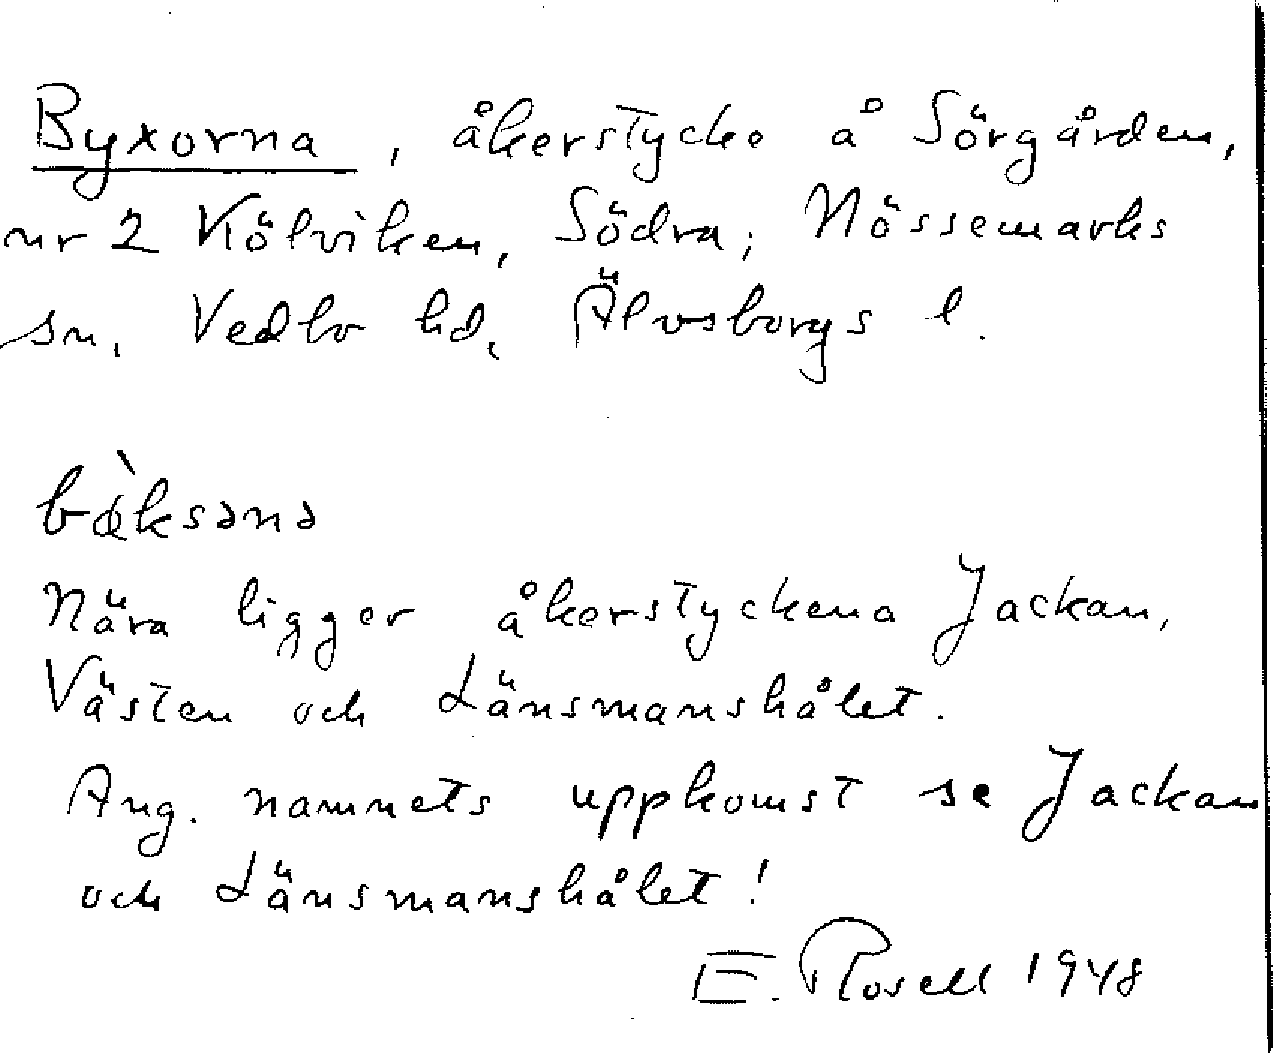 Byxorna, åkerstycke å Sörgården,
nr 2 Kölviken, Södra; Nössemarks
sn, Vedbo hd, Älvsborgs l.
bø̀ksənə
Nära ligger åkerstyckena Jackan,
Västen och Länsmanshålet.
Ang. namnets uppkomst se Jackan
och Länsmanshålet!
E. Rosell 1948